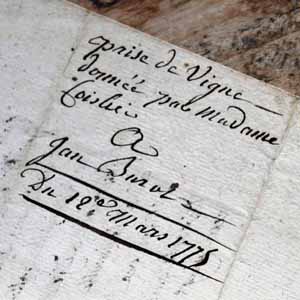 prise de Vigne
donnée par madame
Coislié
A
Jan Burot
Du 12e Mars 1775